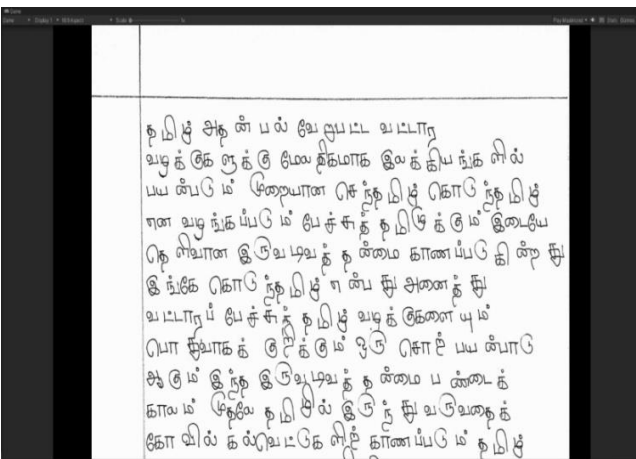 Game
தமிழ் அதன் பல்வேறுபட்ட வட்டார
வழக்குகளுக்கு மேலதிகமாக இலக்கியங்களில்
பயன்படும் முறையான செந்தமிழ் கொடுந்தமிழ்
என வழங்கப்படும் பேச்சுத் தமிழுக்கும் இடையே
தெளிவான இருவடிவத் தன்மை காணப்படுகின்றது
இங்கே கொடுந்தமிழ் என்பது அனைத்து
வட்டாரப் பேச்சுத் தமிழ் வழக்குகளையும்
பொதுவாகக் குறிக்கும் ஒரு சொற் பயன்பாடு
ஆகும் இந்த இருவடிவத் தன்மை பண்டைக்
காலம் முதலே தமிழில் இருந்து வருவதைக்
கோவில் கல்வெட்டுகளிற் காணப்படும் தமிழ்